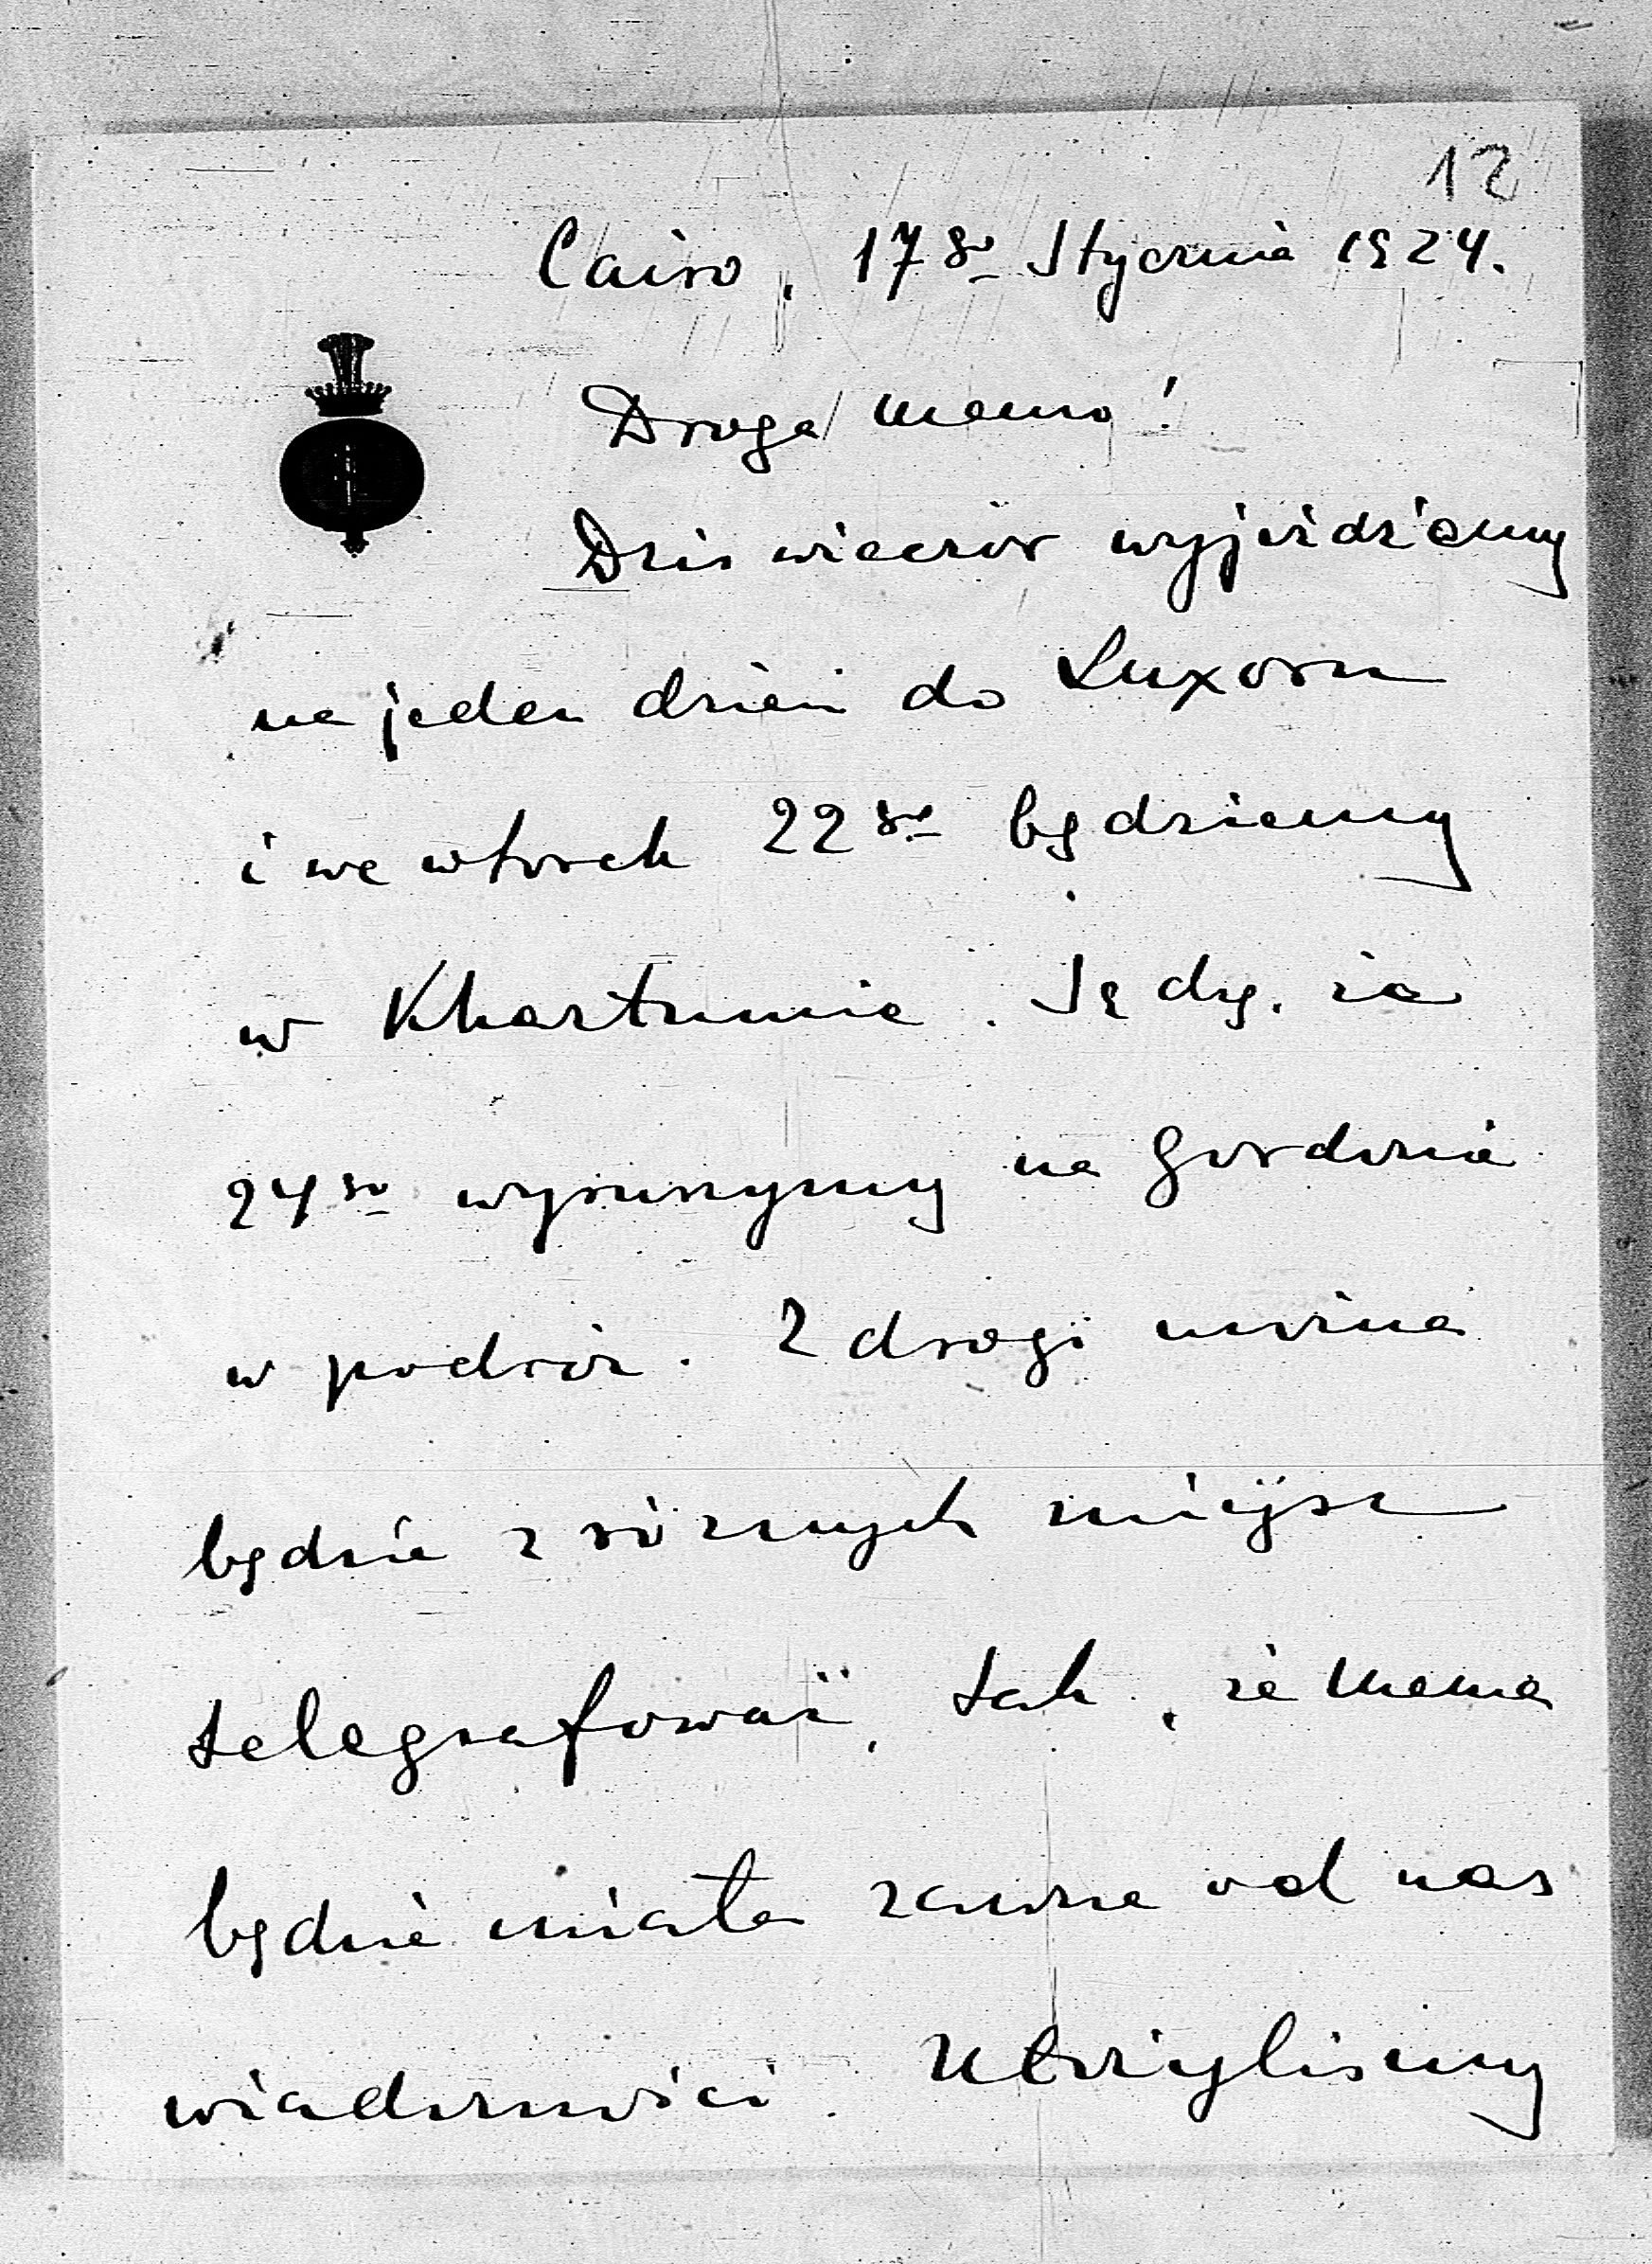 12
Cairo, 17go Stycznia 1924.
Droga Mamo!
Dziś wieczór wyjeżdżamy
na jeden dzień do Luxoru
i we wtorek 22go będziemy
w Khartumie. Sędzę, że
24go wyruszymy na Gordonie
w podróż. Z drogi można
będzie z różnych miejsc
telegrafować, tak, że Mama
będzie miała zawsze od nas
wiadomości.